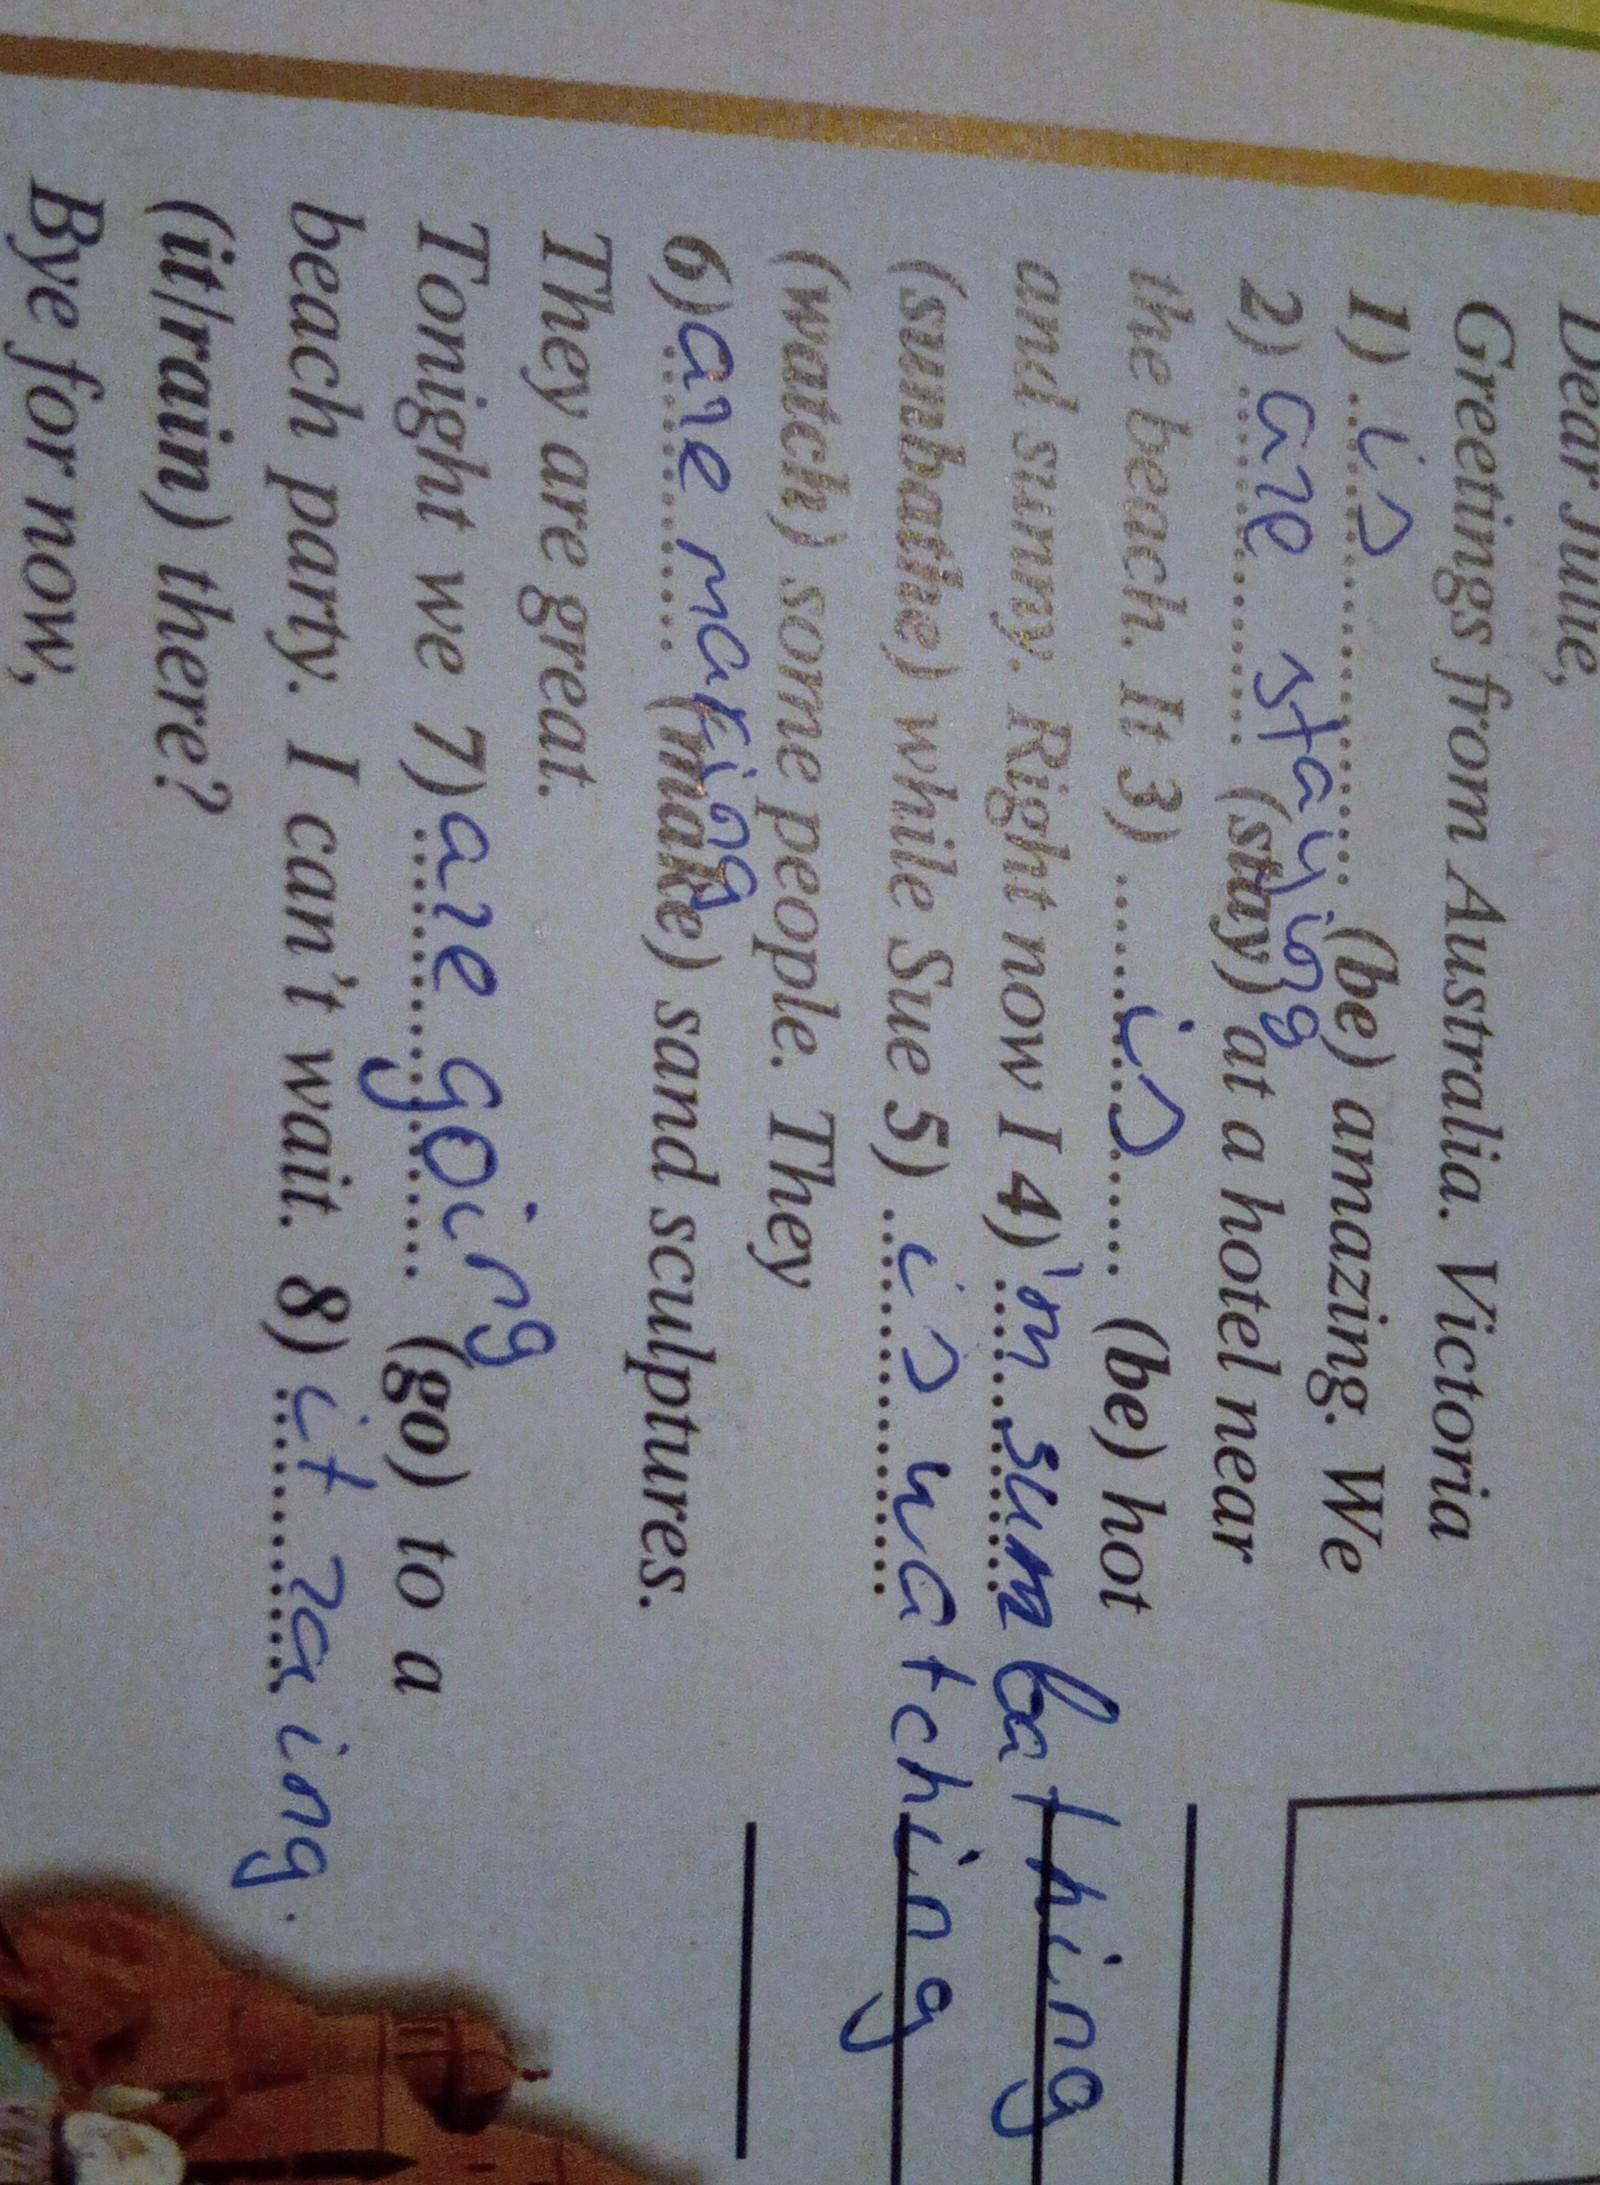 Dear Julie,
Greetings from Australia. Victoria
1) is (be) amazing. We
2) are staying (stay) at a hotel near
the beach. It 3) is (be) hot
and sunny. Right now I 4) 'm sunbathing
(sunbathe) while Sue 5) is watching
(watch) some people. They
6) are making (make) sand sculptures.
They are great.
Tonight we 7) are going (go) to a
beach party. I can't wait. 8) it raing.
(it/rain) there?
Bye for now,